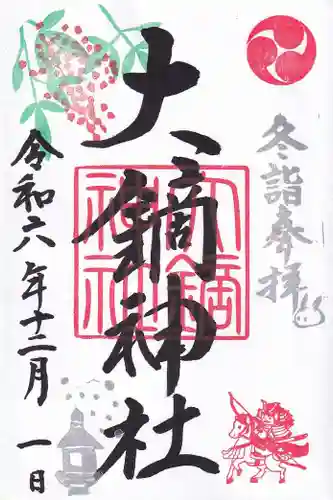 冬詣奉拝
大鏑神社
大鏑神社
令和六年十二月一日